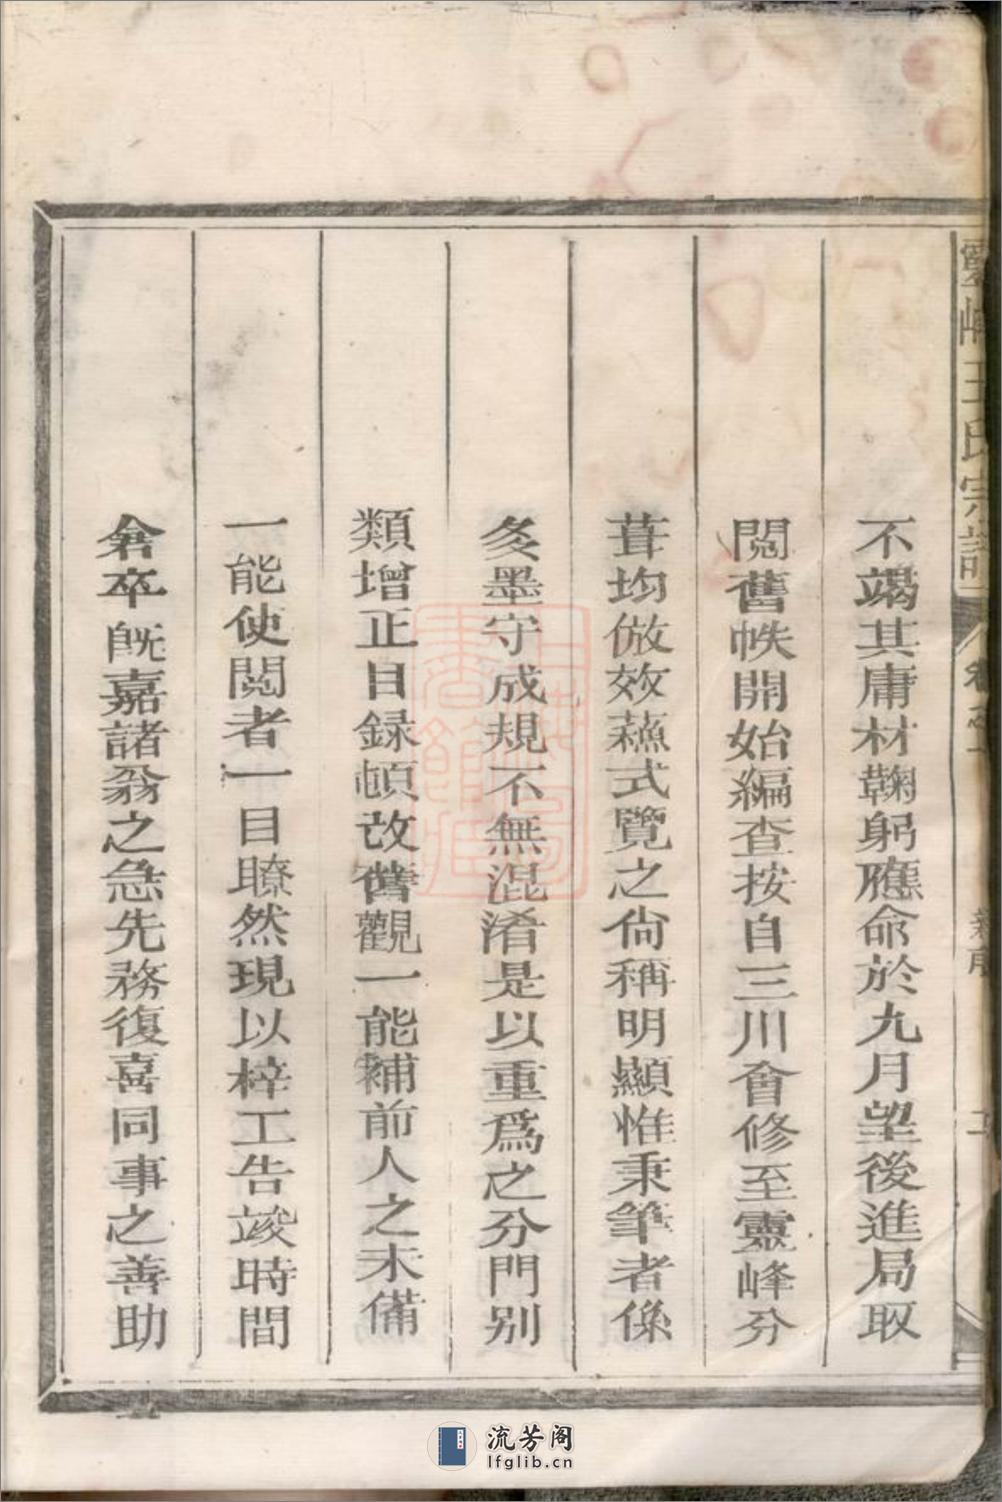 靈峰王氏宗譜
卷之一
新序
不竭其庸材鞠躬應命於九月望後進局取
閱舊帙開始編查按自三川會修至靈峰分
葺均倣效蘓式覽之尙稱明顯惟秉筆者係
多墨守成規不無混淆是以重爲之分門別
類增正目錄頓改舊觀一能補前人之未備
一能使閱者一目瞭然現以梓工告竣時間
倉卒旣嘉諸翁之急先務復喜同事之善助
流芳阁
lfglib.cn